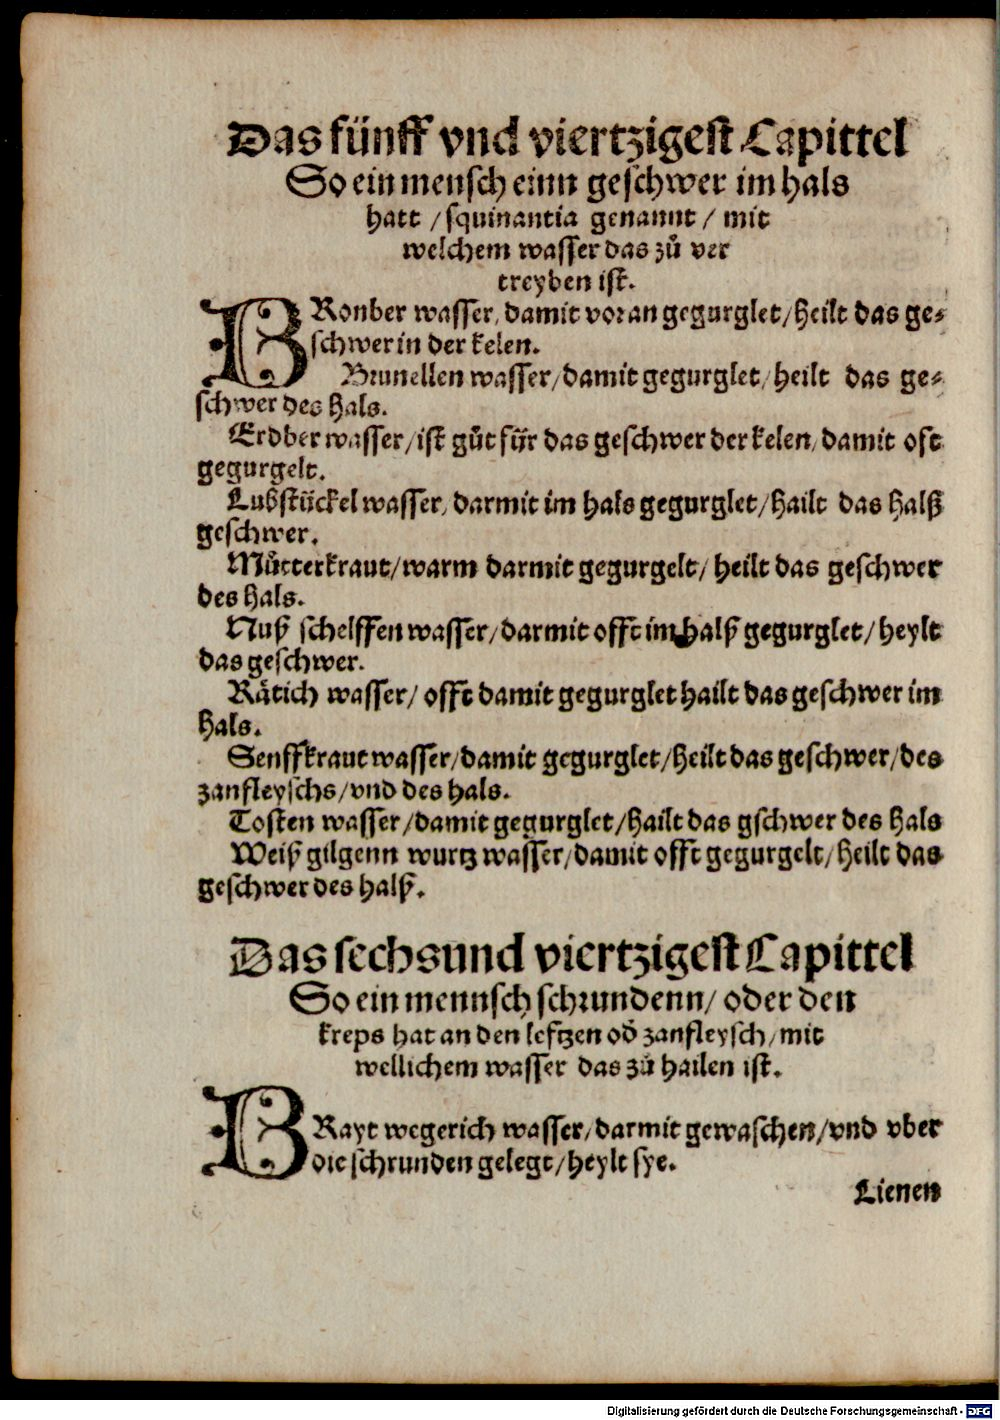 Das fünff vnd viertzigest Capittel
So ein mensch einn geschwer im hals
hatt / squinantia genannt / mit
welchem wasser das zů ver
treyben ist.
BRonber wasser, damit voran gegurglet / heilt das ge-
schwer in der kelen.
Brunellen wasser / damit gegurglet / heilt das ge-
schwer des hals.
Erdber wasser / ist gůt für das geschwer der kelen, damit oft
gegurgelt.
Lubstückel wasser, darmit im hals gegurglet / hailt das halß
geschwer.
Můtterkraut / warm darmit gegurgelt / heilt das geschwer
des hals.
Nuß schelffen wasser / darmit offt im halß gegurglet / heylt
das geschwer.
Rätich wasser / offt damit gegurglet hailt das geschwer im
hals.
Senffkraut wasser / damit gegurglet / heilt das geschwer / des
zanfleyschs / vnd des hals.
Tosten wasser / damit gegurglet / hailt das gschwer des hals
Weiß gilgenn wurtz wasser / damit offt gegurgelt / heilt das
geschwer des halß.
Das sechsund viertzigest Capittel
So ein mennsch schrundenn / oder den
kreps hat an den leftzen od̕ zanfleysch / mit
wellichem wasser das zů hailen ist.
BRayt wegerich wasser / darmit gewaschen / vnd vber
die schrunden gelegt / heylt sye.
Lienen
Digitalisierung gefördert durch die Deutsche Forschungsgemeinschaft - DFG